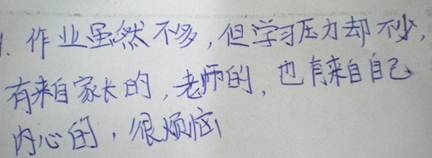 1. 作业虽然不多，但学习压力却不少，
有来自家长的，老师的，也有来自自己
内心的，很烦恼